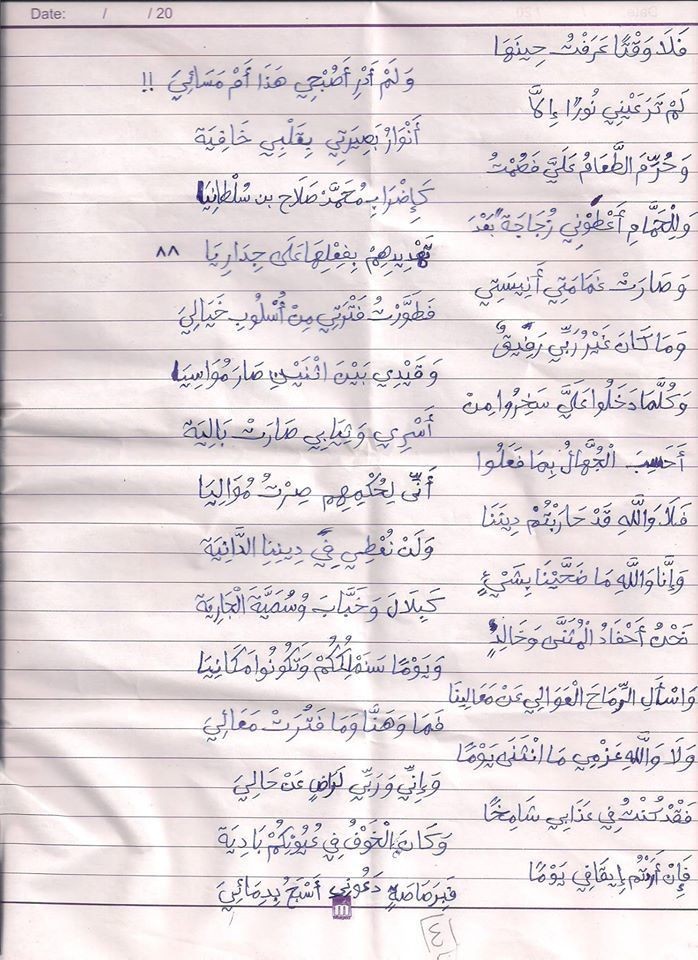 Date: / / 20
فَلَا وَقْتًا عَرَفْتُ حِينَهَا
وَلَمْ أَدْرِ أَصُبْحِي هَذَا أَمْ مَسَائِيَ !!
لَمْ تَرَ عَيْنِي نُورًا إِلَّا
أَنْوَارُ بَصِيرَتِي بِقَلْبِي خَافِيَة
وَحُرِّمَ الطَّعَامُ عَلَيَّ فَصُمْتُ
كَإِضْرَابِ مُحَمَّدْ صَلَاح بن سُلْطَانِيَا
وَلِلْحَمَّامِ أَعْطَوْنِي زُجَاجَةً بَعْدَ
تَهْدِيدِهِمْ بِفِعْلِهَا عَلَى جِدَارِيَا ٨٨
وَصَارَتْ غَمَامَتِي أَنِيسَتِي
فَطَوَّرْتُ فَتْرَتِي مِنْ أُسْلُوبِ خَيَالِيَ
وَمَا كَانَ غَيْرُ رَبِّي رَفِيقٌ
وَقَيْدِي بَيْنَ اثْنَيْنِ صَارَ مُوَاسِيَا
وَكُلَّمَا دَخَلُوا عَلَيَّ سَخِرُوا مِنْ
أَسْرِي وَثِيَابِي صَارَتْ بَالِيَة
أَحَسِبَ الْجُهَّالُ بِمَا فَعَلُوا
أَنِّي لِحُكْمِهِم صِرْتُ مُوَالِيَا
فَلَا وَاللَّهِ قَدْ حَارَبْتُمْ دِينَنَا
وَلَنْ نُعْطِي فِي دِينِنِا الدَّانِيَة
وَإِنَّا وَاللَّهِ مَا ضَحَّيْنَا بِشَيْءٍ
كَبِلَالَ وَخَبَّابَ وَسُمَيَّةَ الْجَارِيَة
نَحْنُ أَحْفَادُ الْمُثَنَّى وَخَالِدٍ
وَيَوْمًا سَنَمْلِكُكُمْ وَتَكُونُوا مَكَانِيَا
وَاسْأَلِ الرِّمَاحَ الْعَوَالِي عَنْ مَعَالِينَا
فَمَا وَهَنَّا وَمَا فَتُرَتْ مَعَالِيَ
وَلَا وَاللَّهِ عَزْمِي مَا انْثَنَى يَوْمًا
وَإِنِّي وَرَبِّي لَرَاضٍ عَنْ حَالِيَ
فَقَدْ كُنْتُ فِي عَذَابِي شَامِخًا
وَكَانَ الْخَوْفُ فِي عُيُونِكُمْ بَادِيَة
فَإِنْ أَرَدْتُمْ إِيقَافِي يَوْمًا
فَبِرَصَاصَةٍ دَعُونِي أَسْبَحُ بِدِمَائِيَ
٤